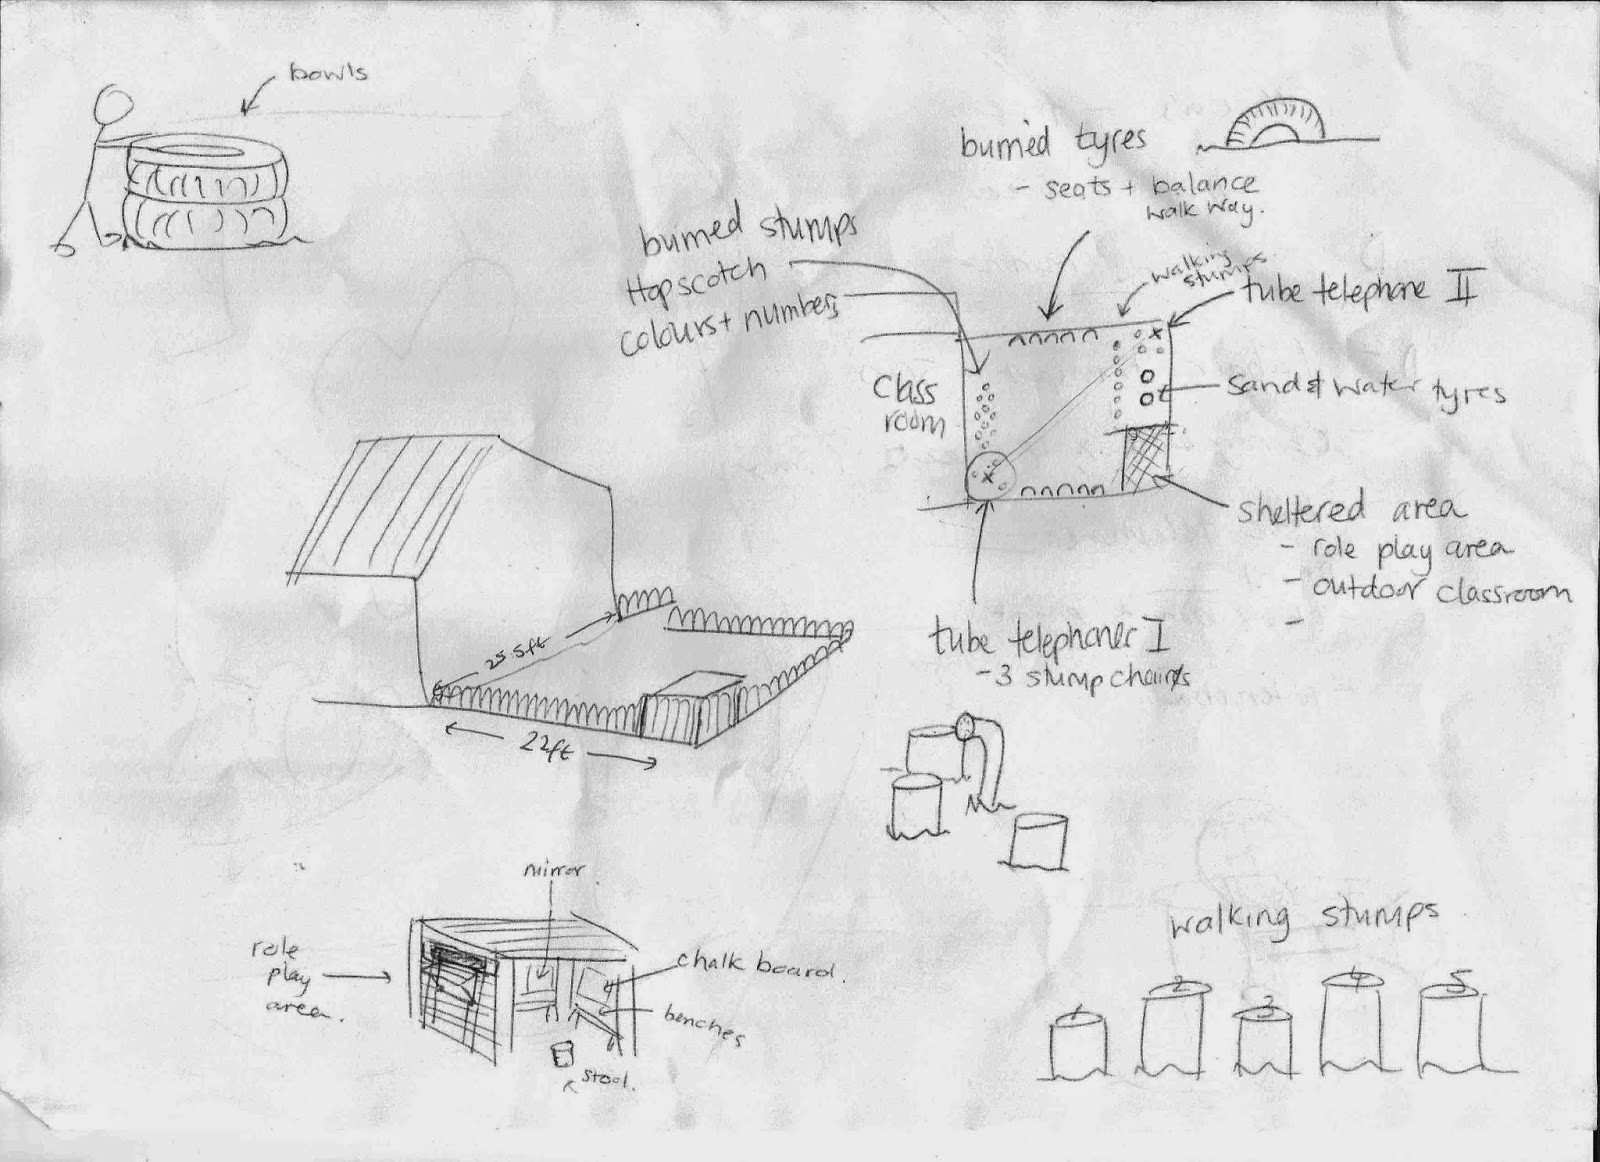 bowls
burried tyres
- seats + balance
walk way.
burried stumps
Hopscotch
colours + numbers
walking
stumps
tube telephone II
class
room
sand & water tyres
sheltered area
- role play area
- outdoor classroom
-
tube telephones I
- 3 stump chairs
25.5ft
22ft
mirror
role
play
area.
chalk board.
benches
stool.
walking stumps
1 2 3 4 5